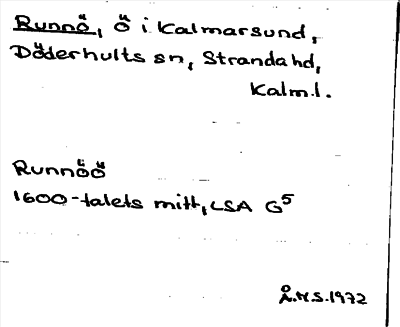 Runnö, Ö i Kalmarsund,
Döderhults sn, Stranda hd,
Kalm.l.
Runnöö
1600-talets mitt, LSA G5
Å.H.S. 1972